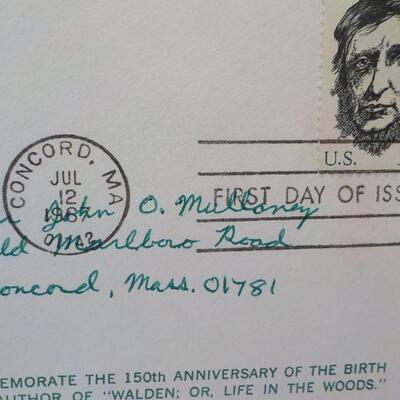 CONCORD, MA
JUL
12
1967
U.S.
FIRST DAY OF ISS
John O. Mullaney
ld Marlboro Road
oncord, Mass. 01781
EMORATE THE 150th ANNIVERSARY OF THE BIRTH
AUTHOR OF "WALDEN; OR, LIFE IN THE WOODS."